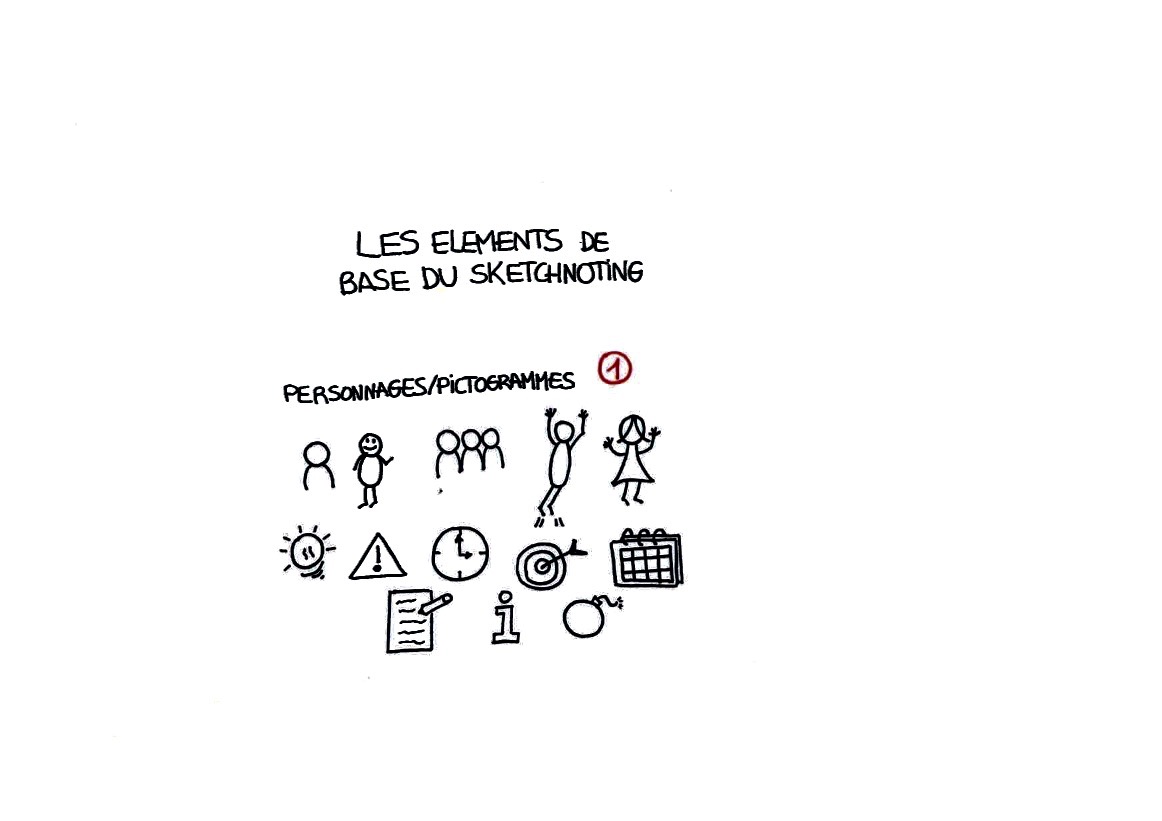 LES ELEMENTS DE
BASE DU SKETCHNOTING
PERSONNAGES/PiCTOGRAMMES 1